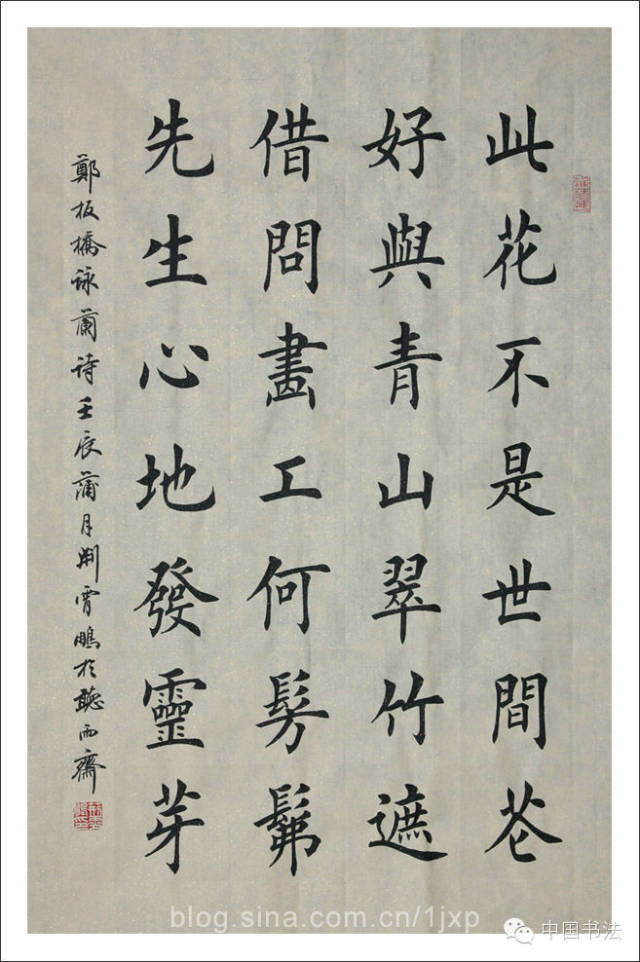 此花不是世間芲
好與青山翠竹遮
借問畫工何髣髴
先生心地發靈芽
鄭板橋詠蘭诗壬辰蒲月荆霄鵬於聽雨齋
blog.sina.com.cn/1jxp
中国书法